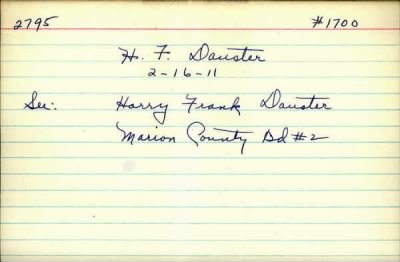 2795 #1700
H. F. Dauster
2-16-11
See: Harry Frank Dauster
Marion County Bd #2